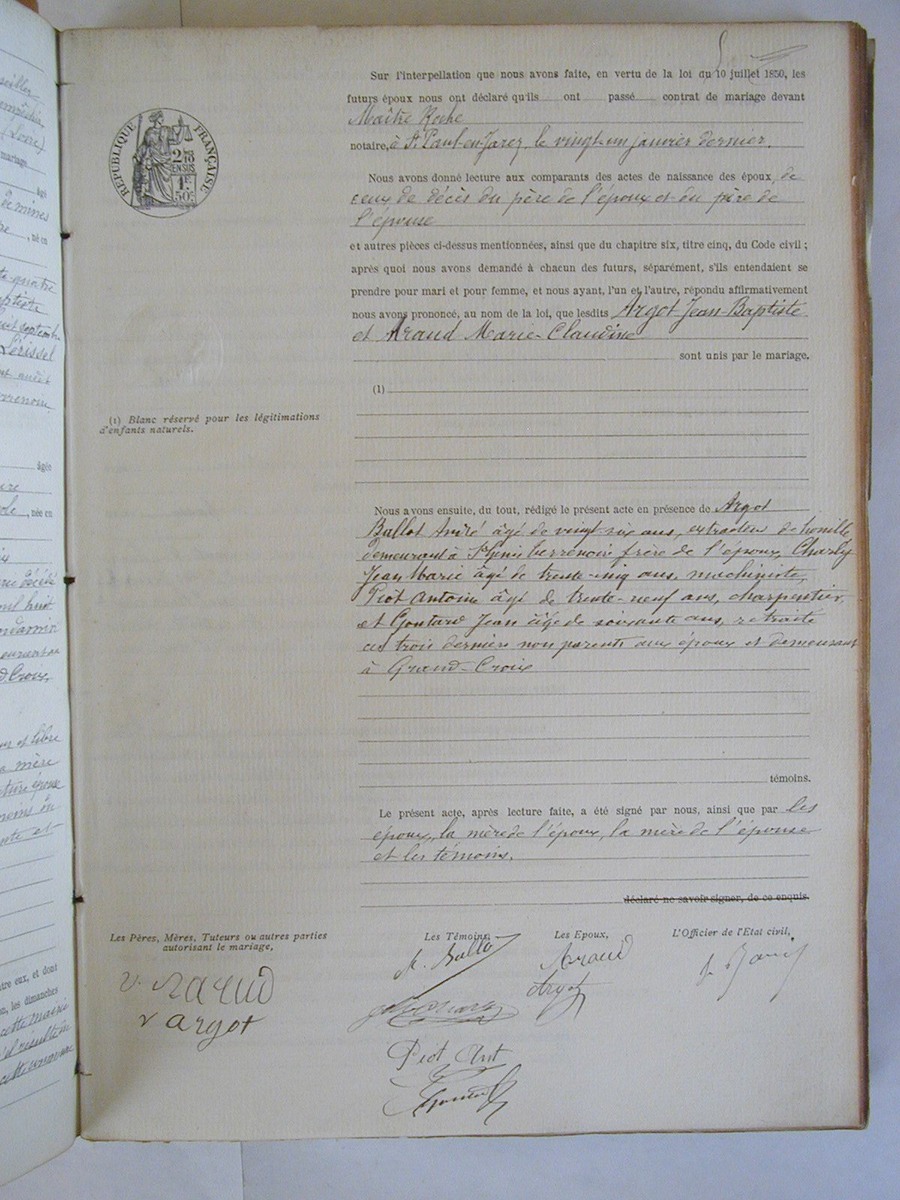 RÉPUBLIQUE FRANÇAISE
2/10 EN SUS
1F 50c
Sur l'interpellation que nous avons faite, en vertu de la loi du 10 juillet 1850, les
futurs époux nous ont déclaré qu'ils ont passé contrat de mariage devant
Maître Roche
notaire, à St Paul-en-Jarez, le vingt un janvier dernier.
Nous avons donné lecture aux comparants des actes de naissance des époux de
ceux de décès du père de l'époux et du père de
l'épouse
et autres pièces ci-dessus mentionnées, ainsi que du chapitre six, titre cinq, du Code civil ;
après quoi nous avons demandé à chacun des futurs, séparément, s'ils entendaient se
prendre pour mari et pour femme, et nous ayant, l'un et l'autre, répondu affirmativement
nous avons prononcé, au nom de la loi, que lesdits Argot Jean-Baptiste
et Araud Marie-Claudine
sont unis par le mariage.
(1)
(1) Blanc réservé pour les légitimations
d'enfants naturels.
Nous avons ensuite, du tout, rédigé le présent acte en présence de Argot
Ballot âgé de vingt-six ans, extracteur de houille
demeurant à frère de l'époux, Charly
Jean Marie âgé de trente-cinq ans, machiniste,
Piot Antoine âgé de trente-neuf ans, charpentier,
et Goutard Jean âgé de soixante ans, retraité
ces trois derniers non parents aux époux et demeurant
à Grand-Croix
témoins.
Le présent acte, après lecture faite, a été signé par nous, ainsi que par les
époux, la mère de l'époux, la mère de l'épouse
et les témoins.
déclaré ne savoir signer, de ce enquis.
Les Pères, Mères, Tuteurs ou autres parties
autorisant le mariage,
Les Témoins,
Les Epoux,
L'Officier de l'Etat civil,
v. Araud
v argot
Araud
Argot
Piot Ant